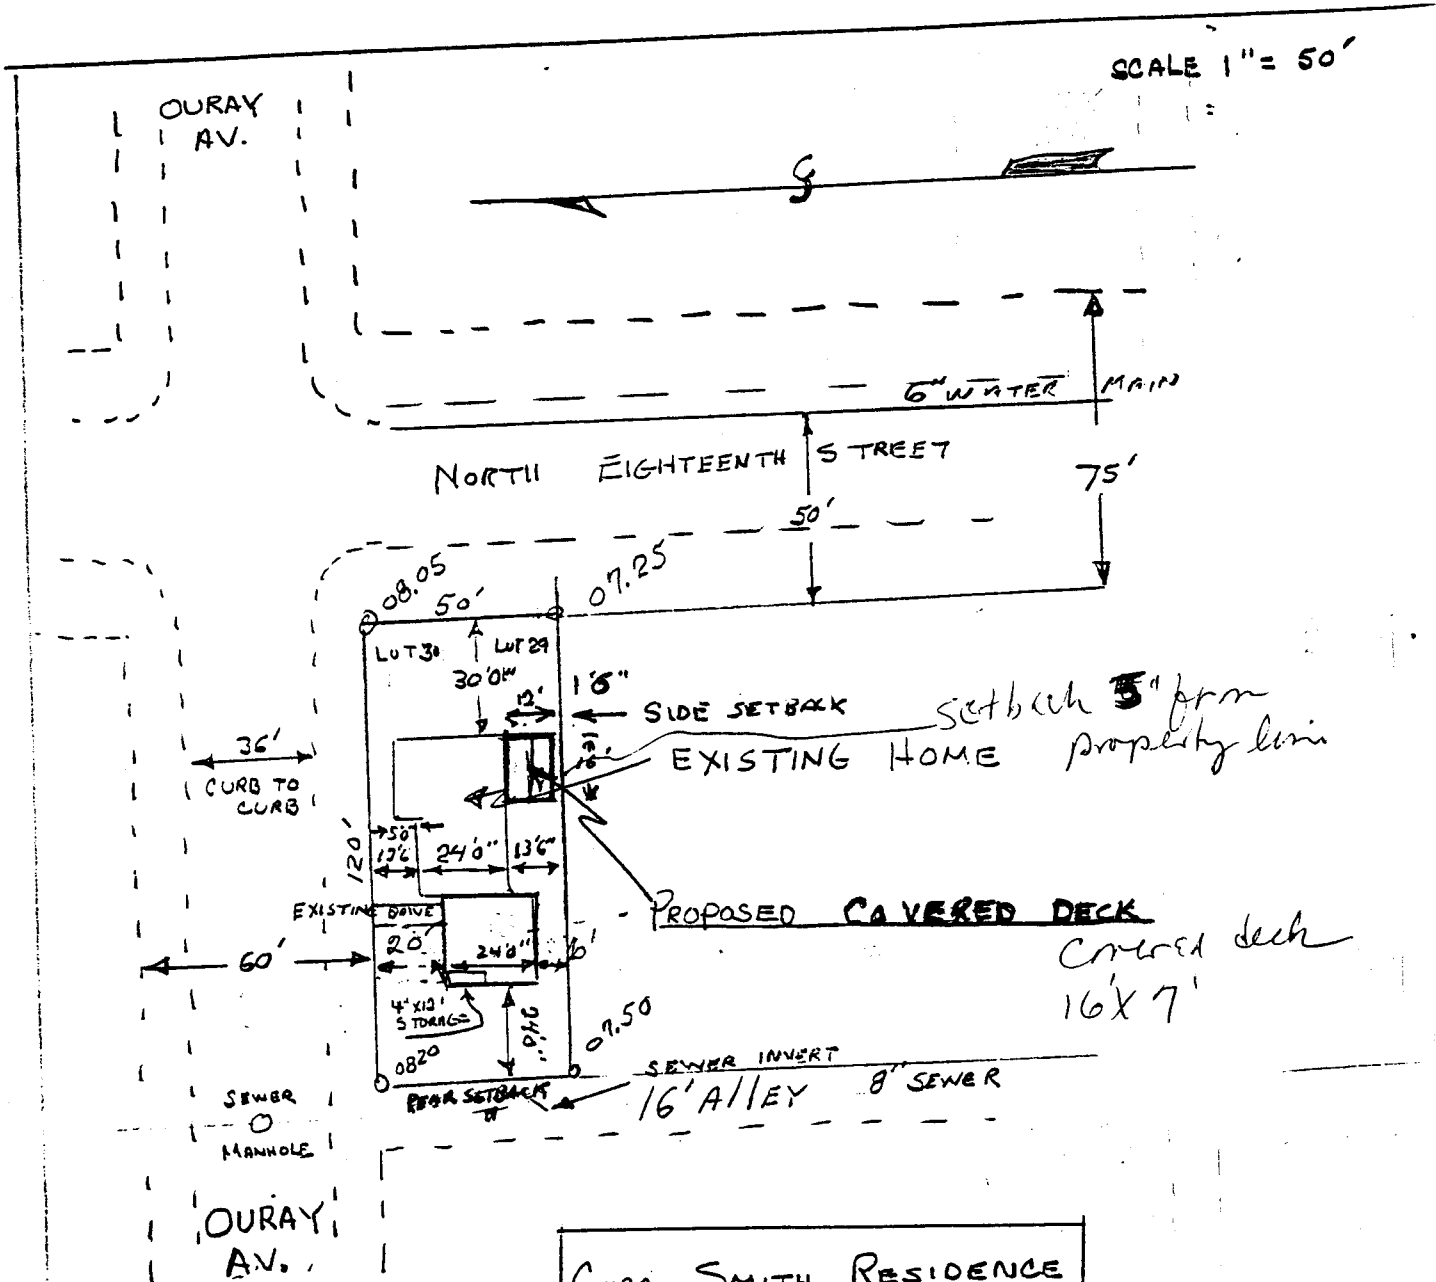 SCALE 1" = 50'
OURAY
AV.
6" WATER MAIN
NORTH EIGHTEENTH STREET
75'
50'
08.05
07.25
50'
LOT 30
LOT 29
30'0"
12'
1'6"
SIDE SETBACK
setback 5" from
property line
16'
EXISTING HOME
36'
CURB TO
CURB
120'
5'0"
12'6
24'0"
13'6"
EXISTING DRIVE
PROPOSED COVERED DECK
covered deck
16' X 7'
20'
24'0"
6'
60'
4'X12'
STORAGE
24'0"
0820
07.50
REAR SETBACK
SEWER INVERT
16' AllEY
8" SEWER
SEWER
MANHOLE
OURAY
AV.
SMITH RESIDENCE